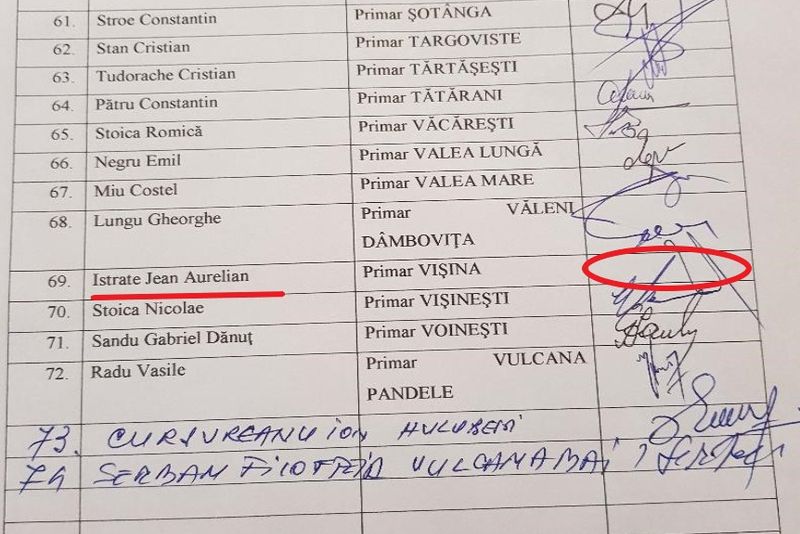 61. Stroe Constantin Primar ŞOTÂNGA
62. Stan Cristian Primar TARGOVISTE
63. Tudorache Cristian Primar TĂRTĂŞEŞTI
64. Pătru Constantin Primar TĂTĂRANI
65. Stoica Romică Primar VĂCĂREŞTI
66. Negru Emil Primar VALEA LUNGĂ
67. Miu Costel Primar VALEA MARE
68. Lungu Gheorghe Primar VĂLENI
DÂMBOVIŢA
69. Istrate Jean Aurelian Primar VIŞINA
70. Stoica Nicolae Primar VIŞINEŞTI
71. Sandu Gabriel Dănuţ Primar VOINEŞTI
72. Radu Vasile Primar VULCANA
PANDELE
73. CURSUREANU ION HULUBESI
74 SERBAN VULCANA BAI